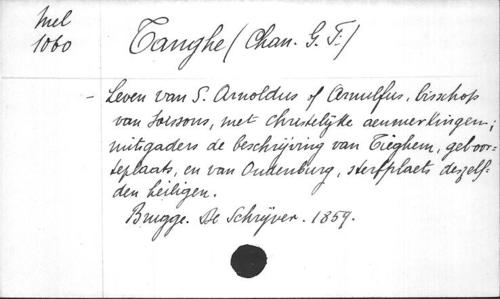 Mel
1060
Tanghe (Chan. G. F.)
- Leven van S. Arnoldus of Arnulfus, bisschop
van Soissons, met christelijke aenmerkingen;
mitsgaders de beschrijving van Tieghem, geboor-
teplaats, en van Oudenburg, sterfplaets deszelf-
den heiligen.
Brugge. De Schrijver. 1859.